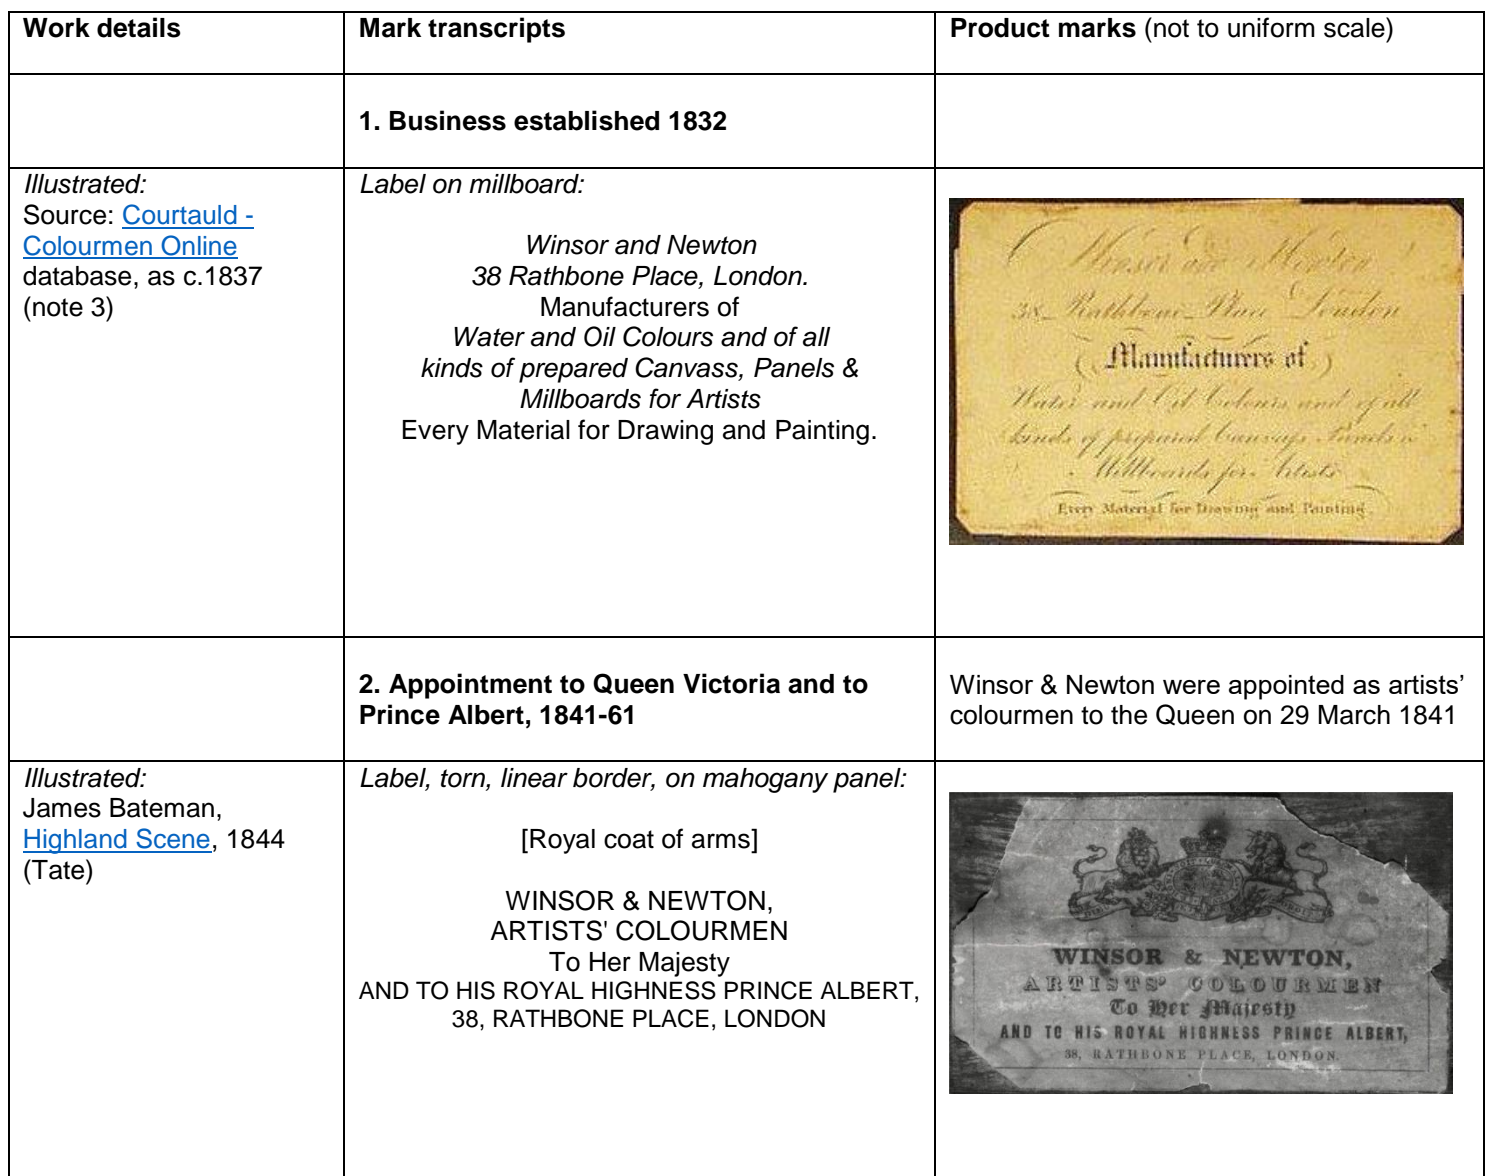 Work details
Mark transcripts
Product marks (not to uniform scale)
1. Business established 1832
Illustrated:
Source: Courtauld -
Colourmen Online
database, as c.1837
(note 3)
Label on millboard:
Winsor and Newton
38 Rathbone Place, London.
Manufacturers of
Water and Oil Colours and of all
kinds of prepared Canvass, Panels &
Millboards for Artists
Every Material for Drawing and Painting.
Winsor and Newton
38 Rathbone Place London
Manufacturers of
Water and Oil Colours and of all
kinds of prepared Canvass Panels &
Millboards for Artists
Every Material for Drawing and Painting.
2. Appointment to Queen Victoria and to
Prince Albert, 1841-61
Winsor & Newton were appointed as artists’
colourmen to the Queen on 29 March 1841
Illustrated:
James Bateman,
Highland Scene, 1844
(Tate)
Label, torn, linear border, on mahogany panel:
[Royal coat of arms]
WINSOR & NEWTON,
ARTISTS' COLOURMEN
To Her Majesty
AND TO HIS ROYAL HIGHNESS PRINCE ALBERT,
38, RATHBONE PLACE, LONDON
WINSOR & NEWTON,
ARTISTS' COLOURMEN
To Her Majesty
AND TO HIS ROYAL HIGHNESS PRINCE ALBERT,
38, RATHBONE PLACE, LONDON.